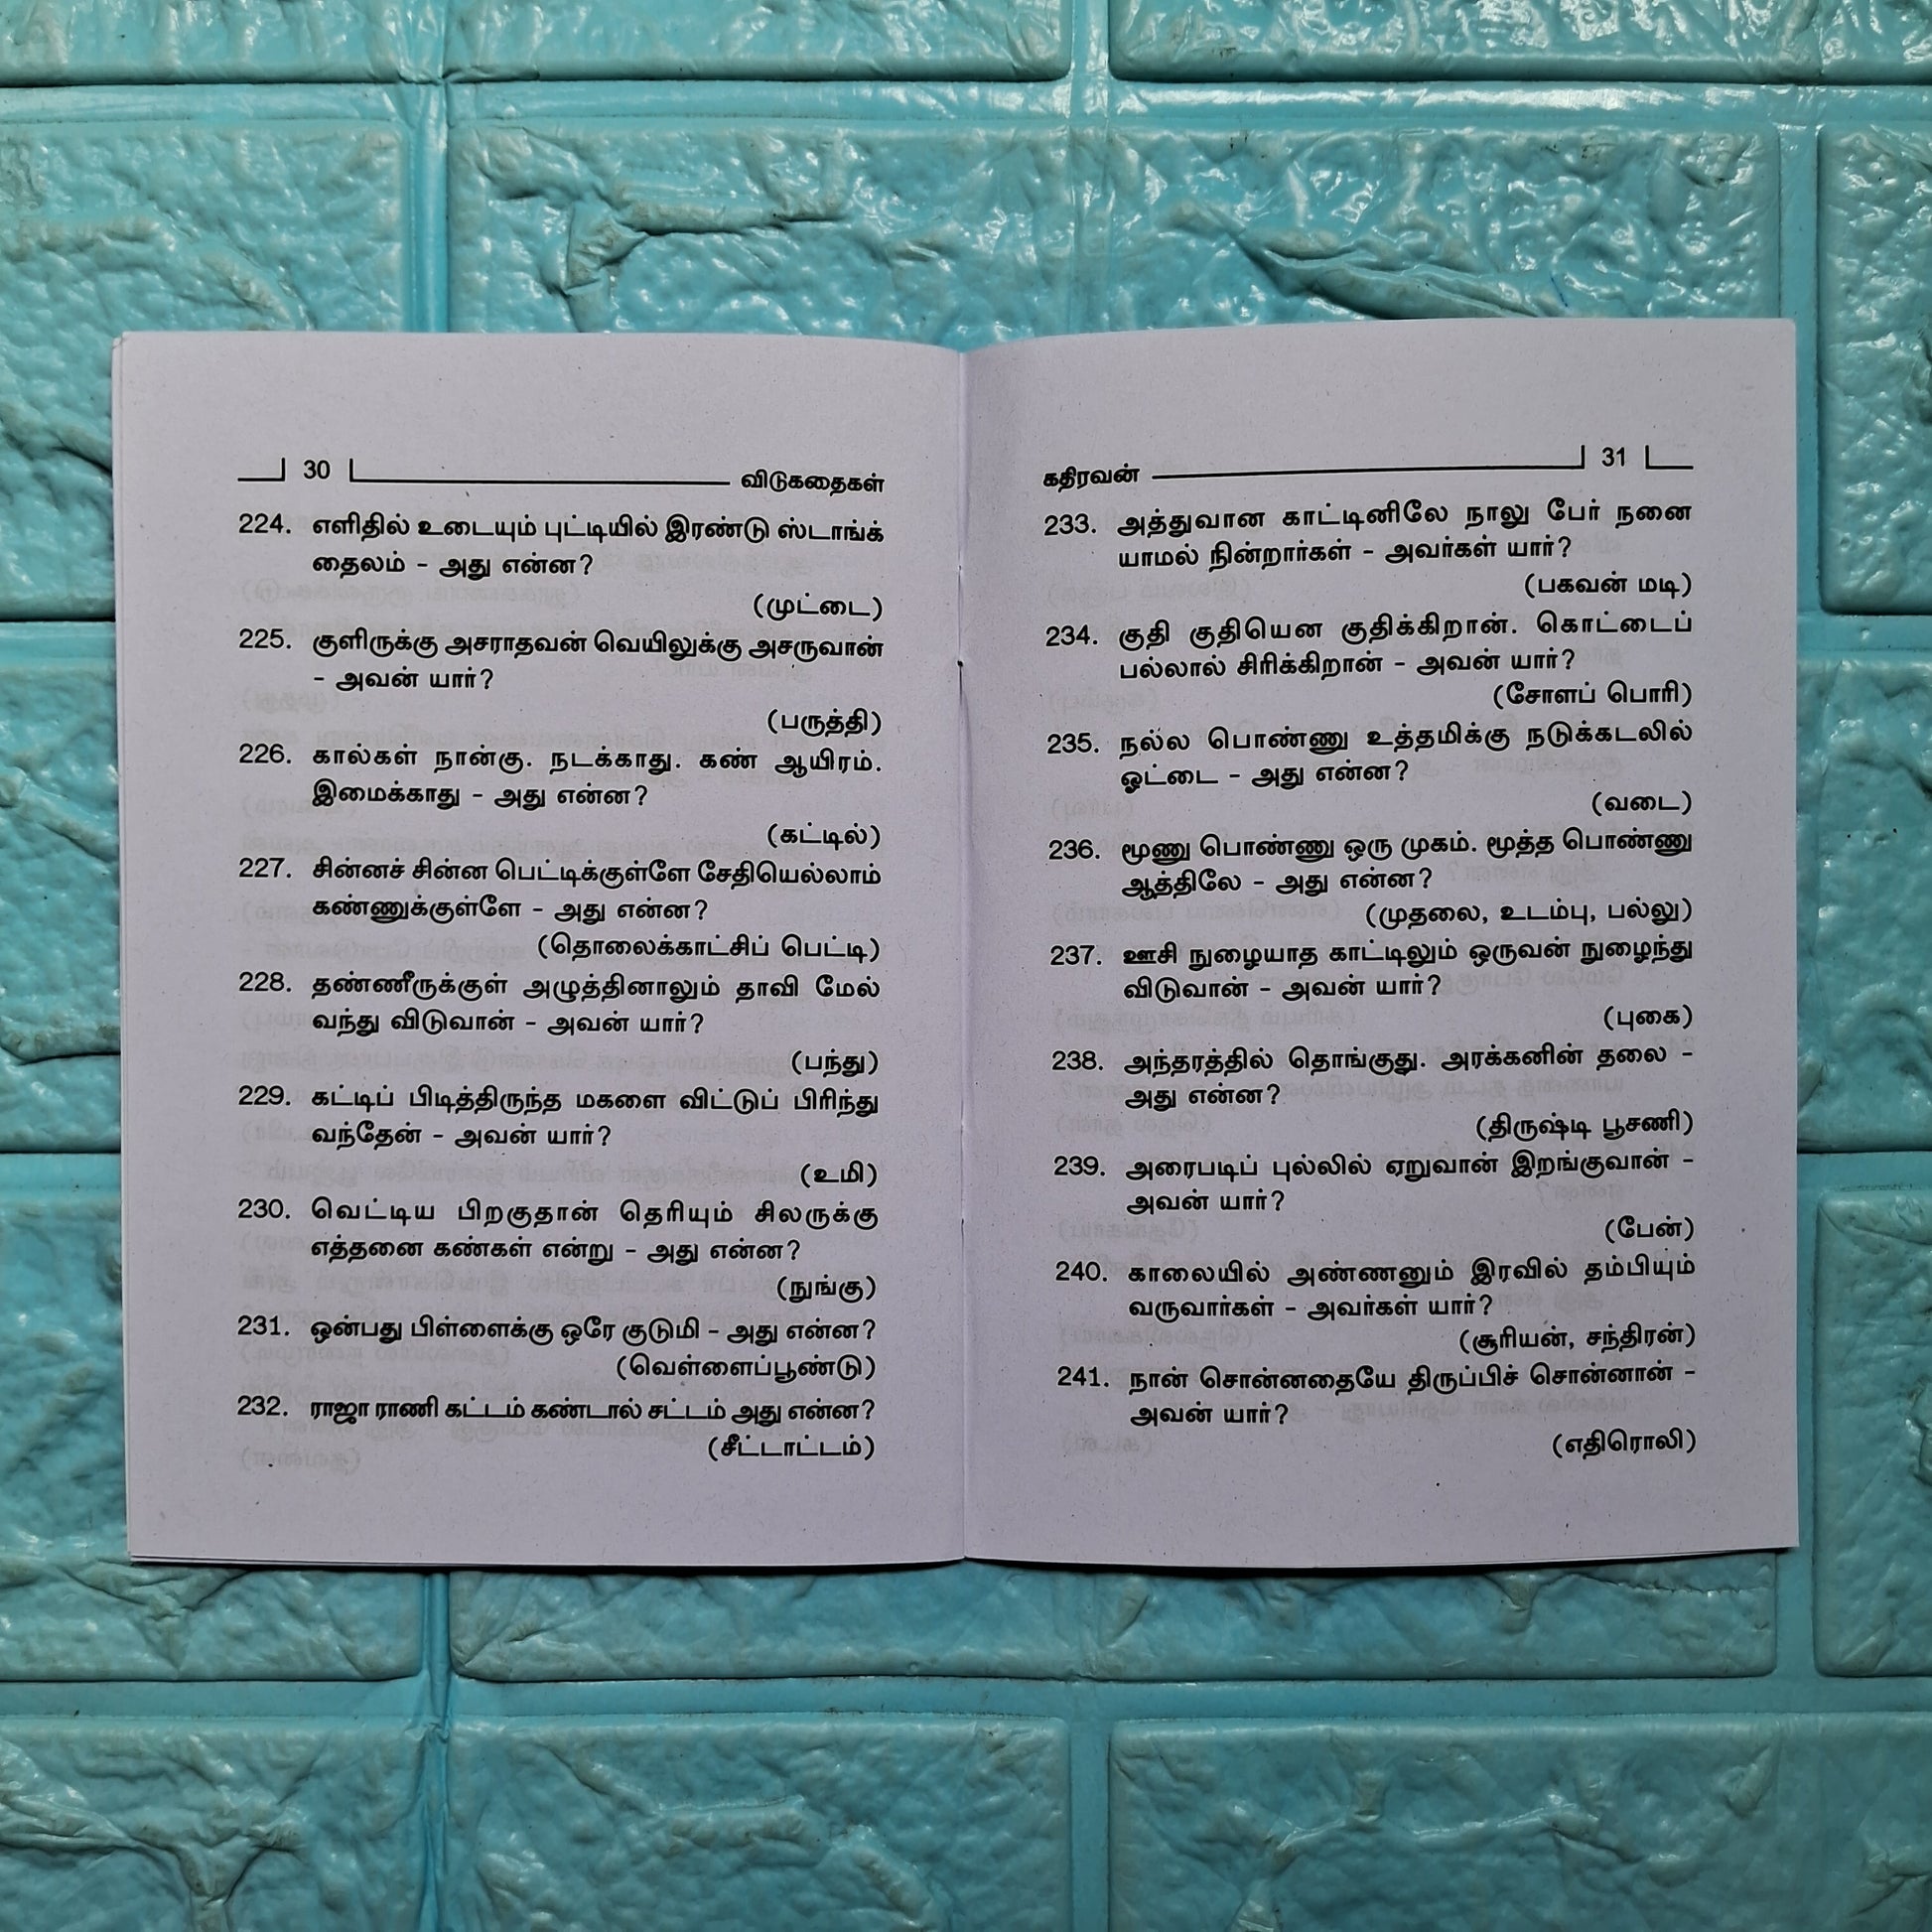 30 விடுகதைகள்
224. எளிதில் உடையும் புட்டியில் இரண்டு ஸ்டாங்க்
தைலம் - அது என்ன?
(முட்டை)
225. குளிருக்கு அசராதவன் வெயிலுக்கு அசருவான்
- அவன் யார்?
(பருத்தி)
226. கால்கள் நான்கு. நடக்காது. கண் ஆயிரம்.
இமைக்காது - அது என்ன?
(கட்டில்)
227. சின்னச் சின்ன பெட்டிக்குள்ளே சேதியெல்லாம்
கண்ணுக்குள்ளே - அது என்ன?
(தொலைக்காட்சிப் பெட்டி)
228. தண்ணீருக்குள் அழுத்தினாலும் தாவி மேல்
வந்து விடுவான் - அவன் யார்?
(பந்து)
229. கட்டிப் பிடித்திருந்த மகளை விட்டுப் பிரிந்து
வந்தேன் - அவன் யார்?
(உமி)
230. வெட்டிய பிறகுதான் தெரியும் சிலருக்கு
எத்தனை கண்கள் என்று - அது என்ன?
(நுங்கு)
231. ஒன்பது பிள்ளைக்கு ஒரே குடுமி - அது என்ன?
(வெள்ளைப்பூண்டு)
232. ராஜா ராணி கட்டம் கண்டால் சட்டம் அது என்ன?
(சீட்டாட்டம்)
கதிரவன் 31
233. அத்துவான காட்டினிலே நாலு பேர் நனை
யாமல் நின்றார்கள் - அவர்கள் யார்?
(பகவன் மடி)
234. குதி குதியென குதிக்கிறான். கொட்டைப்
பல்லால் சிரிக்கிறான் - அவன் யார்?
(சோளப் பொரி)
235. நல்ல பொண்ணு உத்தமிக்கு நடுக்கடலில்
ஓட்டை - அது என்ன?
(வடை)
236. மூணு பொண்ணு ஒரு முகம். மூத்த பொண்ணு
ஆத்திலே - அது என்ன?
(முதலை, உடம்பு, பல்லு)
237. ஊசி நுழையாத காட்டிலும் ஒருவன் நுழைந்து
விடுவான் - அவன் யார்?
(புகை)
238. அந்தரத்தில் தொங்குது. அரக்கனின் தலை -
அது என்ன?
(திருஷ்டி பூசணி)
239. அரைபடிப் புல்லில் ஏறுவான் இறங்குவான் -
அவன் யார்?
(பேன்)
240. காலையில் அண்ணனும் இரவில் தம்பியும்
வருவார்கள் - அவர்கள் யார்?
(சூரியன், சந்திரன்)
241. நான் சொன்னதையே திருப்பிச் சொன்னான் -
அவன் யார்?
(எதிரொலி)